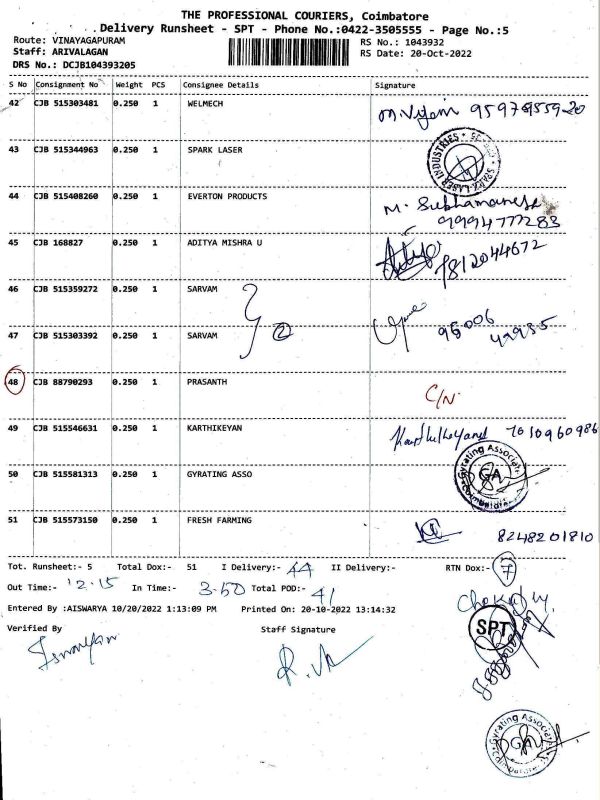 THE PROFESSIONAL COURIERS, Coimbatore
Delivery Runsheet - SPT - Phone No.:0422-3505555 - Page No.:5
Route: VINAYAGAPURAM RS No.: 1043932
Staff: ARIVALAGAN RS Date: 20-Oct-2022
DRS No.: DCJB104393205
S No Consignment No Weight PCS Consignee Details Signature
42 CJB 515303481 0.250 1 WELMECH
43 CJB 515344963 0.250 1 SPARK LASER SPARK LASER INDUSTRIES
44 CJB 515408260 0.250 1 EVERTON PRODUCTS M.
9994777283
45 CJB 168827 0.250 1 ADITYA MISHRA U 7812044672
46 CJB 515359272 0.250 1 SARVAM
2
47 CJB 515303392 0.250 1 SARVAM 95006
48 CJB 88790293 0.250 1 PRASANTH C/N
49 CJB 515546631 0.250 1 KARTHIKEYAN Karthikeyan 7010960986
50 CJB 515581313 0.250 1 GYRATING ASSO Gyrating Associates GA Coimbatore
51 CJB 515573150 0.250 1 FRESH FARMING 8248201810
Tot. Runsheet:- 5 Total Dox:- 51 I Delivery:- 44 II Delivery:- RTN Dox:- 7
Out Time:- 12.15 In Time:- 3.50 Total POD:- 41
Entered By :AISWARYA 10/20/2022 1:13:09 PM Printed On: 20-10-2022 13:14:32
Verified By Staff Signature SPT
Gyrating Associates GA Coimbatore